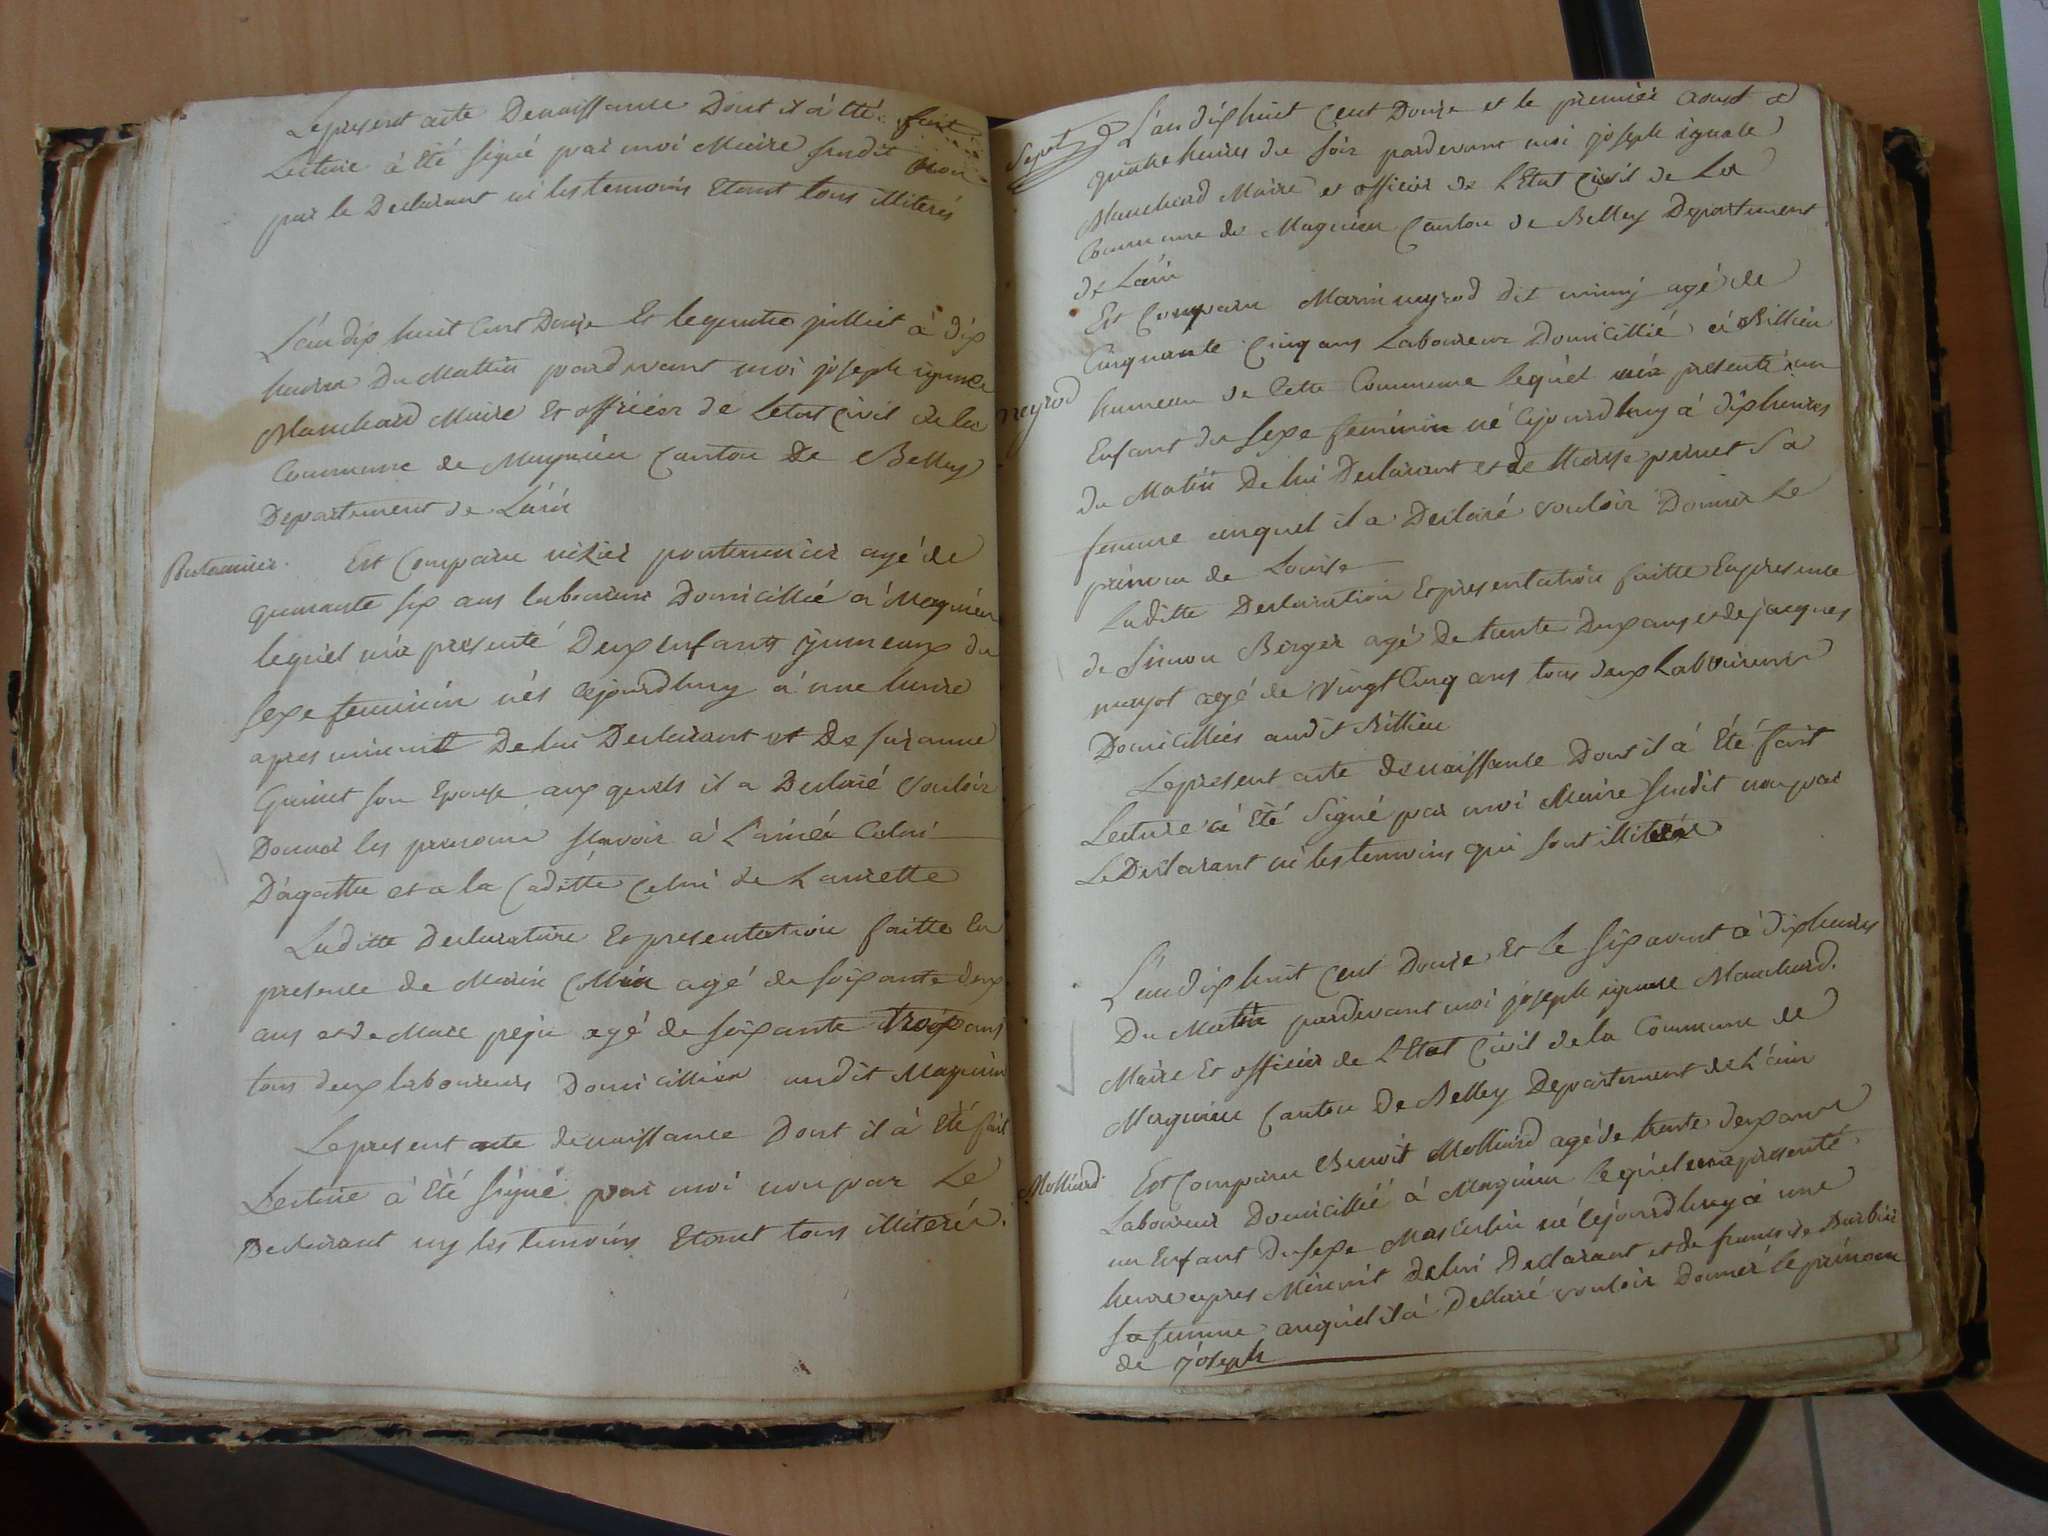 Le present acte De naissance Dont il à été fait
Lecture à été signé par moi Maire susdit non
par le Declarant ni les temoins Etant tous illiterés
L'an dix huit cent Douze Et le quatre juillet à dix
heures Du Mattin pardevant moi joseph ignace
Blanchard Maire Et officier de L'etat Civil de la
Commune de Magnieu Canton De Belley
Departement de L'ain
Est Comparu pontannier agé de
quarante six ans laboureur Domicillié à Magnieu
lequel m'a presenté Deux enfants jumeaux du
sexe feminin nés cejourdhuy à une heure
apres minuitt De lui Declarant et De suzanne
Guinet son Epouse aux quels il a Declaré vouloir
Donner les prenoms savoir à L'ainée Celui
D'agathe et a la Cadette Celui de Laurette
Laditte Declaratoire Et presentation faitte En
presence de Marin Collin agé de soixante deux
ans et de Marc peju agé de soixante trois ans
tous deux laboureurs Domicilliés audit Magnieu
Le present acte de naissance Dont il à été fait
Lecture à été signé par moi non par Le
Declarant ny les temoins Etant tous illiterés.
L'an dix huit Cent Douze et le premier aoust a
quatre heures du soir pardevant moi joseph ignace
Blanchard Maire et officier de L'Etat Civil de La
Commune de Magnieu Canton de Belley Departement
de L'ain
neyrod
Est Comparu Marin neyrod dit agé de
Cinquante Cinq ans Laboureur Domicillié à Billieu
hameau de Cette Commune lequel m'a presenté un
Enfant du sexe feminin né cejourdhuy à dix heures
du Matin De lui Declarant et de pernet sa
femme auquel il a Declaré vouloir Donner Le
prénom de Louise
Laditte Declaration Et presentation faitte En presence
de Simon Berger agé de trente Deux ans et de jacques
agé de vingt Cinq ans tous deux Laboureurs
Domicilliés audit Billieu
Le present acte de naissance Dont il à Eté fait
Lecture à Eté signé par moi Maire susdit non par
Le Declarant ni les temoins qui sont illiterés
L'an dix huit Cent Douze Et le six aoust à dix heures
Du Matin pardevant moi joseph ignace Blanchard.
Maire Et officier de L'Etat Civil de la Commune de
Magnieu Canton De Belley Departement de L'ain
Molliard
Est Comparu Benoit Molliard agé de trente deux ans
Laboureur Domicillié à Magnieu lequel m'a presenté
un Enfant Du sexe Masculin né cejourdhuy à une
heure apres Minuit de lui Declarant et de francoise Barbier
sa femme auquel il a Declaré vouloir Donner le prénom
de joseph